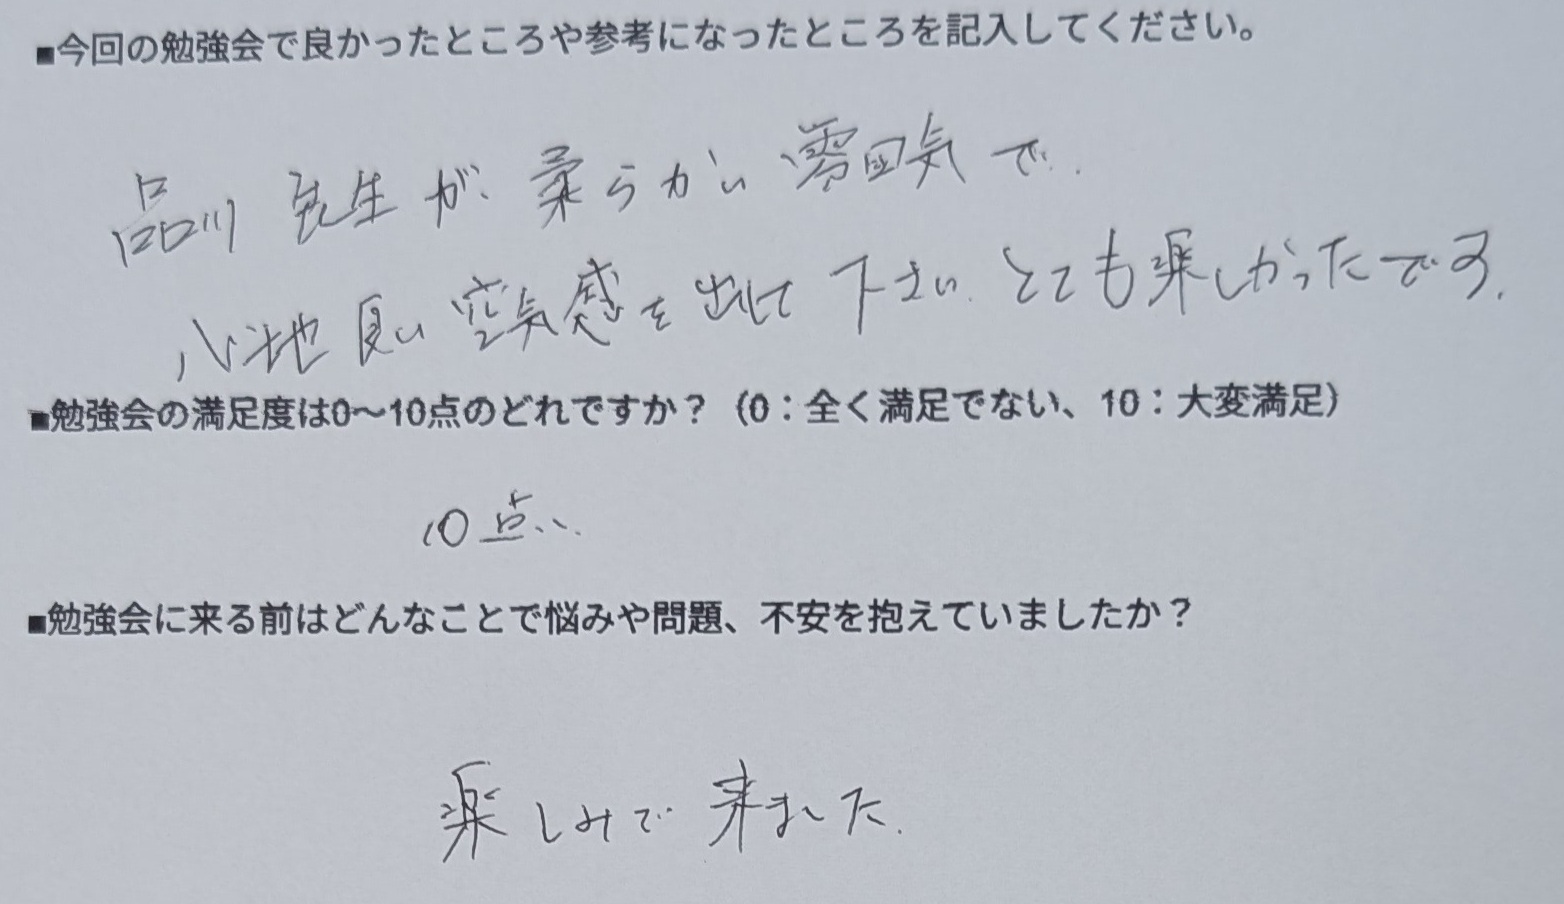 ■今回の勉強会で良かったところや参考になったところを記入してください。
品川先生が柔らかい雰囲気で、
心地良い空気感を出して下さい、とても楽しかったです。
■勉強会の満足度は0～10点のどれですか？（0：全く満足でない、10：大変満足）
10点
■勉強会に来る前はどんなことで悩みや問題、不安を抱えていましたか？
楽しみで来ました。